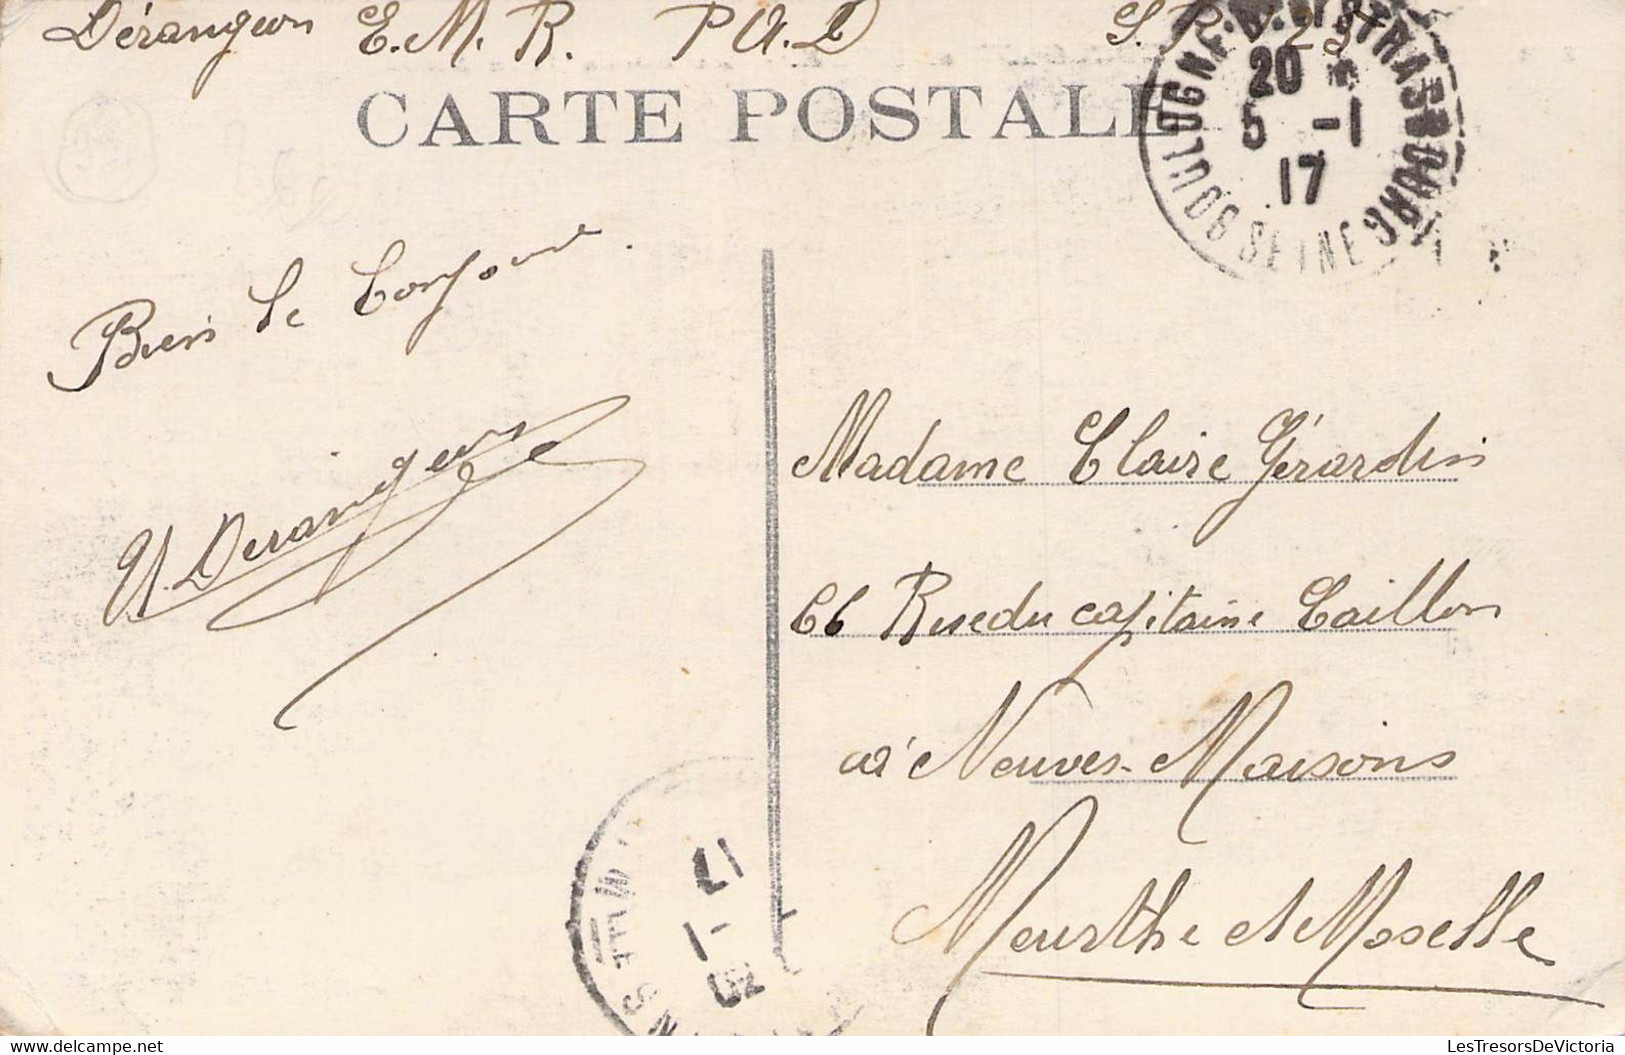 Dérangeon E.M.R. P.A.D
CARTE POSTALE
BOULOGNE-B. STRASBOURG
20 *
5 -1
17
SEINE
Biens le bonjour.
Derangeon
Madame Claire Gérardin
66 Rue du capitaine Caillon
à Neuves-Maisons
Meurthe et Moselle
17
-1
LesTresorsDeVictoria
www.delcampe.net